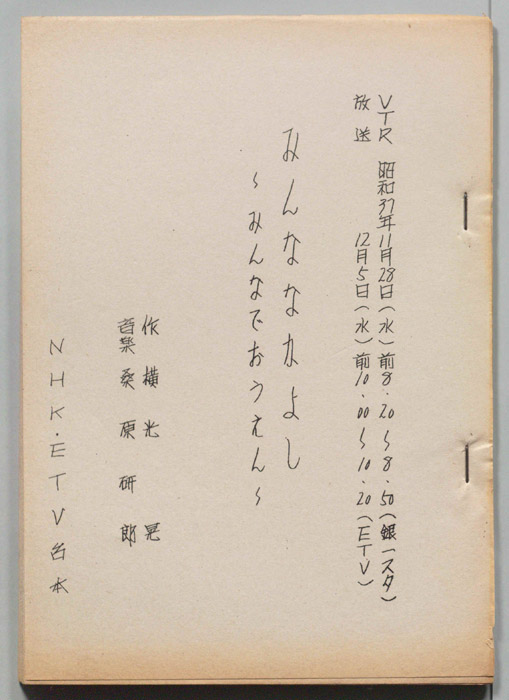 VTR 昭和37年11月28日(水)前8.20〜8.50(銀一スタ)
放送 12月5日(水)前10.00〜10.20(ETV)
みんななかよし
〜みんなでおうえん〜
作 横光 晃
音楽 桑原 研郎
NHK・ETV台本